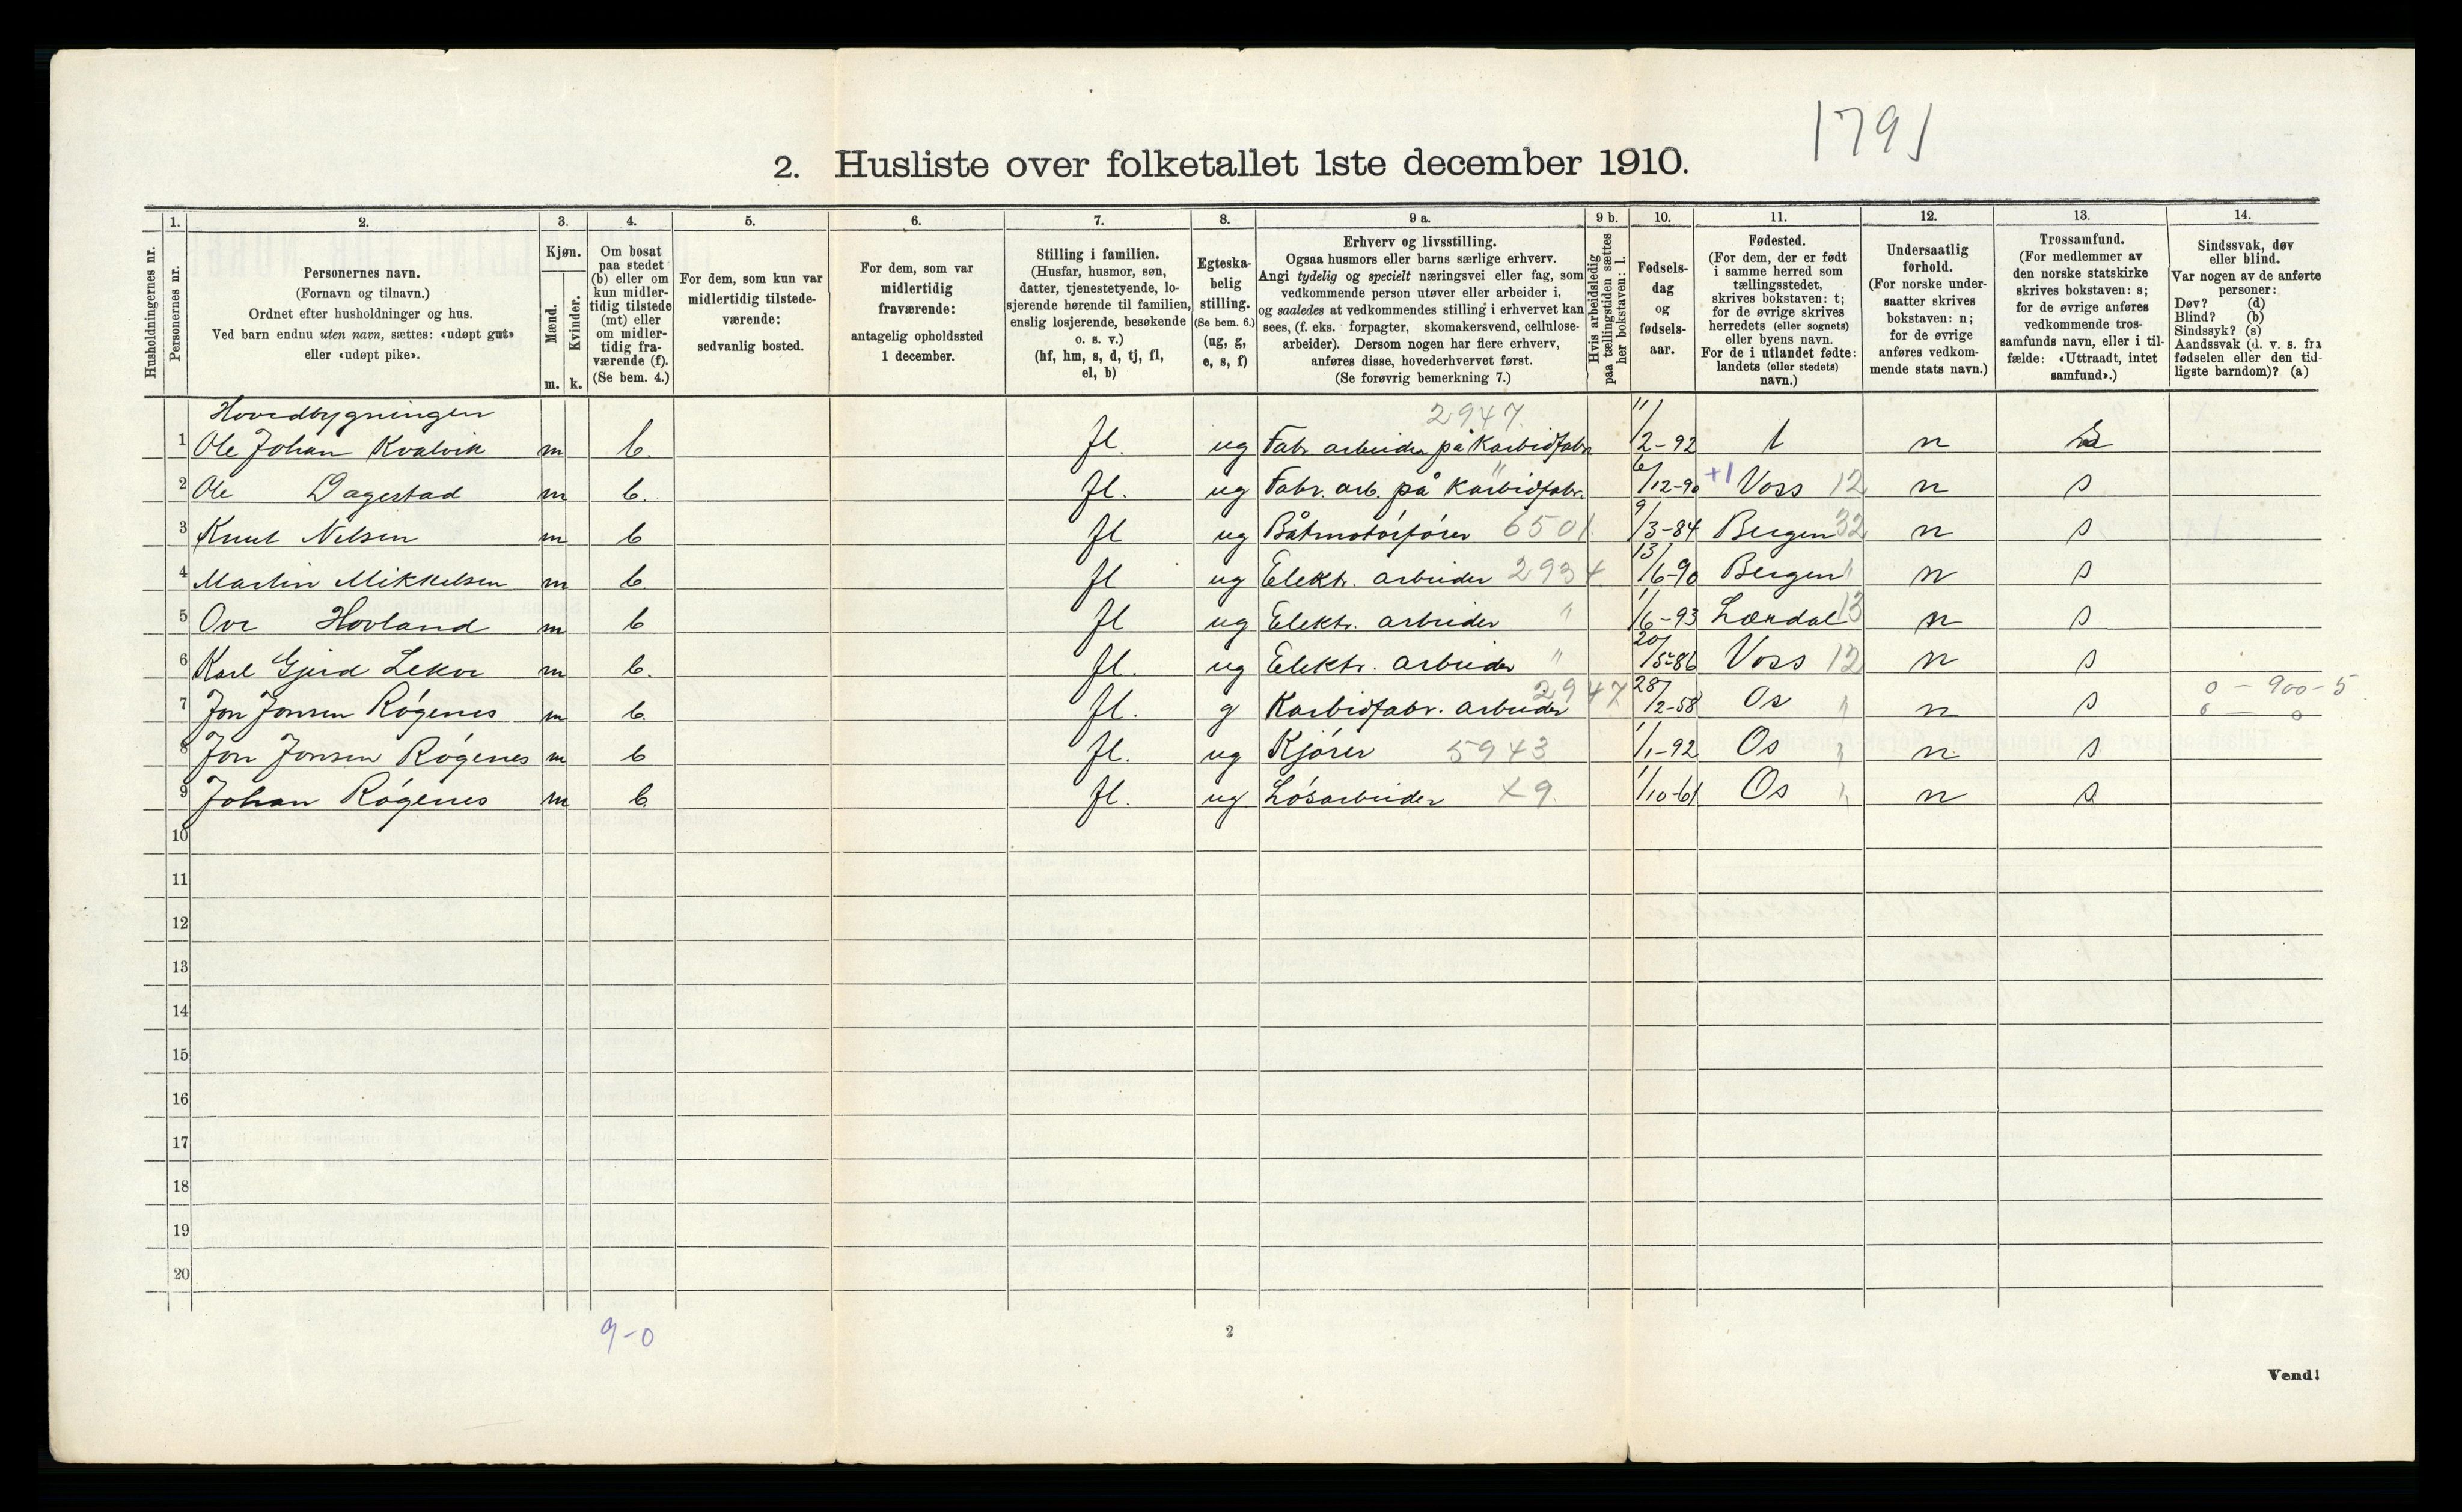 1791
2. Husliste over folketallet 1ste december 1910.
1. 2. 3. 4. 5. 6. 7. 8. 9 a. 9 b. 10. 11. 12. 13. 14.
Husholdningernes nr.
Personernes nr.
Personernes navn.
(Fornavn og tilnavn.)
Ordnet efter husholdninger og hus.
Ved barn endnu uten navn, sættes: «udøpt gut»
eller «udøpt pike».
Kjøn.
Mænd.
Kvinder.
m. k.
Om bosat
paa stedet
(b) eller om
kun midler-
tidig tilstede
(mt) eller
om midler-
tidig fra-
værende (f).
(Se bem. 4.)
For dem, som kun var
midlertidig tilstede-
værende:
sedvanlig bosted.
For dem, som var
midlertidig
fraværende:
antagelig opholdssted
1 december.
Stilling i familien.
(Husfar, husmor, søn,
datter, tjenestetyende, lo-
sjerende hørende til familien,
enslig losjerende, besøkende
o. s. v.)
(hf, hm, s, d, tj, fl,
el, b)
Egteska-
belig
stilling.
(Se bem. 6.)
(ug, g,
e, s, f)
Erhverv og livsstilling.
Ogsaa husmors eller barns særlige erhverv.
Angi tydelig og specielt næringsvei eller fag, som
vedkommende person utøver eller arbeider i,
og saaledes at vedkommendes stilling i erhvervet kan
sees, (f. eks. forpagter, skomakersvend, cellulose-
arbeider). Dersom nogen har flere erhverv,
anføres disse, hovederhvervet først.
(Se forøvrig bemerkning 7.)
Hvis arbeidsledig
paa tællingstiden sættes
her bokstaven: l.
Fødsels-
dag
og
fødsels-
aar.
Fødested.
(For dem, der er født
i samme herred som
tællingsstedet,
skrives bokstaven: t;
for de øvrige skrives
herredets (eller sognets)
eller byens navn.
For de i utlandet fødte:
landets (eller stedets)
navn.)
Undersaatlig
forhold.
(For norske under-
saatter skrives
bokstaven: n;
for de øvrige
anføres vedkom-
mende stats navn.)
Trossamfund.
(For medlemmer av
den norske statskirke
skrives bokstaven: s;
for de øvrige anføres
vedkommende tros-
samfunds navn, eller i til-
fælde: «Uttraadt, intet
samfund».)
Sindssvak, døv
eller blind.
Var nogen av de anførte
personer:
Døv? (d)
Blind? (b)
Sindssyk? (s)
Aandssvak (d. v. s. fra
fødselen eller den tid-
ligste barndom)? (a)
Hovedbygningen 2947.
1 Ole Johan Kvalvik m b. fl. ug Fabr arbeider på Karbidfabr 11/2-92 t n s
2 Ole Dagestad m b. fl. ug Fabr. arb. på Karbidfabr. " 6/12-90 +1 Voss 12 n s
3 Knut Nelsen m b fl ug Båtmotórfórer 6501. 9/3-84 Bergen 32 n s
4 Martin Mikkelsen m b. fl ug Elektr. arbeider 2934. 13/6-90 Bergen " n s
5 Ove Hovland m b fl ug Elektr. arbeider " 1/6-93 Lærdal 13 n s
6 Karl Gjerd Lekve m b. fl. ug Elektr. arbeider " 20/5-86 Voss 12 n s
7 Jon Jonsen Rógenes m b. fl. g Karbidfabr. arbeider 2947 28/2-58 Os " n s 0 - 900-5
0 - 0
8 Jon Jonsen Rógenes m b fl. ug Kjórer 5943 1/1-92 Os " n s
9 Johan Rógenes m b fl. ug Lósarbeider x9. 1/10-61 Os " n s
10
11
12
13
14
15
16
17
18
19
20
9-0
2
Vend!